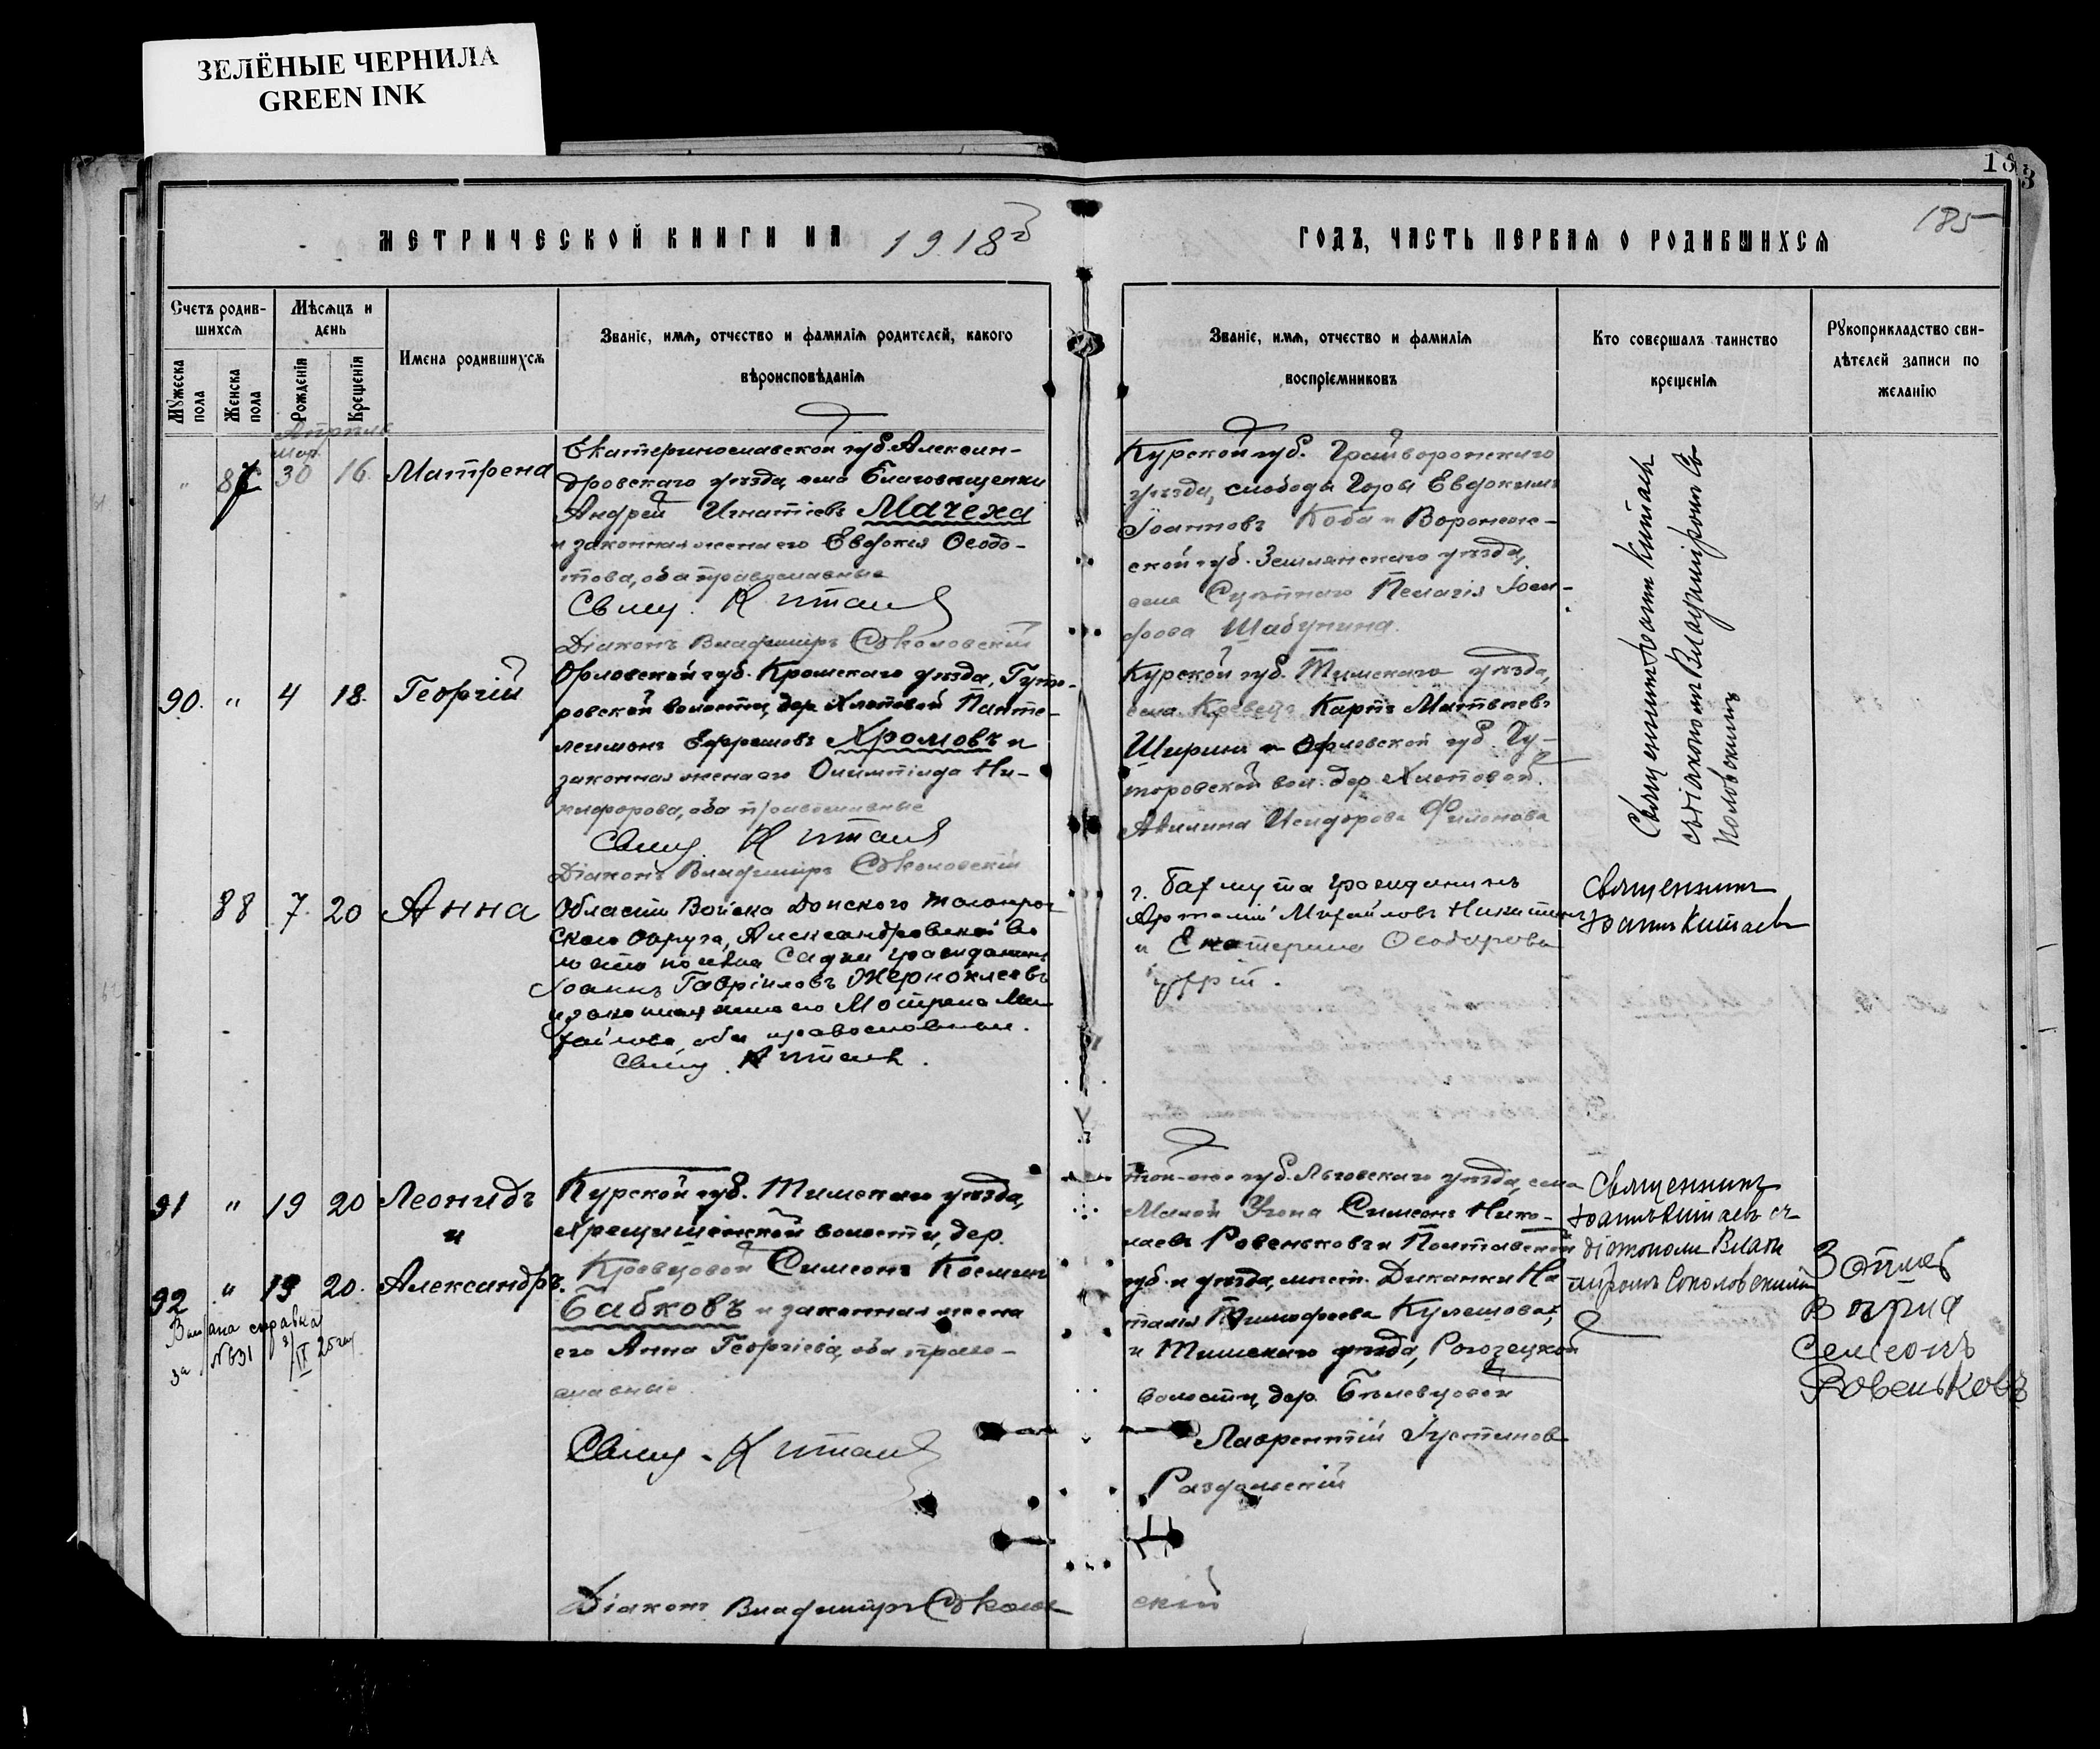 ЗЕЛЁНЫЕ ЧЕРНИЛА
GREEN INK
183
185
МЕТРИЧЕСКОЙ КНИГИ НА 1918 г
ГОДЪ, ЧАСТЬ ПЕРВАЯ О РОДИВШИХСЯ
Счетъ родив-
шихся
Мужеска пола
Женска пола
Мѣсяцъ и
день
Рожденія
Крещенія
Имена родившихся
Званіе, имя, отчество и фамилія родителей, какого
вѣроисповѣданія
Званіе, имя, отчество и фамилія
воспріемниковъ
Кто совершалъ таинство
крещенія
Рукоприкладство сви-
дѣтелей записи по
желанію
Апрѣль
Мар.
" 87 30 16. Матрена
Екатеринославской губ. Алексан-
дровскаго уѣзда, села Благовѣщенки
Андрей Игнатіевъ Мачеха
и законная жена его Евдокія Ѳеодо-
това, оба православные
Свящ. Китаев
Діаконъ Владиміръ Соколовскій
Курской губ. Грайворонскаго
уѣзда, слободы Горы Евдокимъ
Іоанновъ Коба и Воронеж-
ской губ. Землянскаго уѣзда,
села Пелагія Іоси-
фова Шабунина.
Священникъ Іоаннъ Китаевъ
съ діакономъ Владиміромъ Со-
коловскимъ
90. " 4 18. Георгій
Орловской губ. Кромскаго уѣзда, Гуто-
ровской волости, дер. Хлѣтовой Панте-
леимонъ Ефремовъ Хромовъ и
законная жена его Олимпіада Ни-
кифорова, оба православные
Свящ. Китаев
Діаконъ Владиміръ Соколовскій
Курской губ. Тимскаго уѣзда,
села Кревецъ Карпъ Матвѣевъ
Ширинъ и Орловской губ. Гу-
торовской вол. дер. Хлѣтовой.
Акилина Исидорова Филонова
88 7 20 Анна
Области Войска Донского Таганрог-
ского округа, Александровской во-
лости поселка Садки гражданинъ
Іоаннъ Гавріиловъ Жерноклеевъ
и законная жена его Матрена Ми-
хайлова, оба православные.
Свящ. Китаев.
г. Бахмута гражданинъ
Артемій Михайловъ Никитинъ
и Екатерина Ѳеодорова
Священникъ
Іоаннъ Китаевъ
91 " 19 20 Леонидъ
и
92 " 19 20. Александръ.
Выдана справка
за №631 3/IV 25 год
Курской губ. Тимскаго уѣзда,
волости, дер.
Кревцовой Симеонъ Косминъ
Бабковъ и законная жена
его Анна Георгіева, оба право-
славные.
Свящ. Китаев
Діаконъ Владиміръ Соколовскій
той-же губ. Льговскаго уѣзда, села
Малой Угона Симеонъ Нико-
лаевъ Ровеньковъ и Полтавской
губ. и уѣзда, мѣст. Диканки На-
талія Тимофеева Кулешова,
и Тимскаго уѣзда, Рогозецкой
волости, дер. Бѣлевцовой
Лаврентій Іустиновъ
Раздольскій
Священникъ
Іоаннъ Китаевъ съ
діакономъ Влади-
міромъ Соколовскимъ
Семіонъ
Ровеньковъ